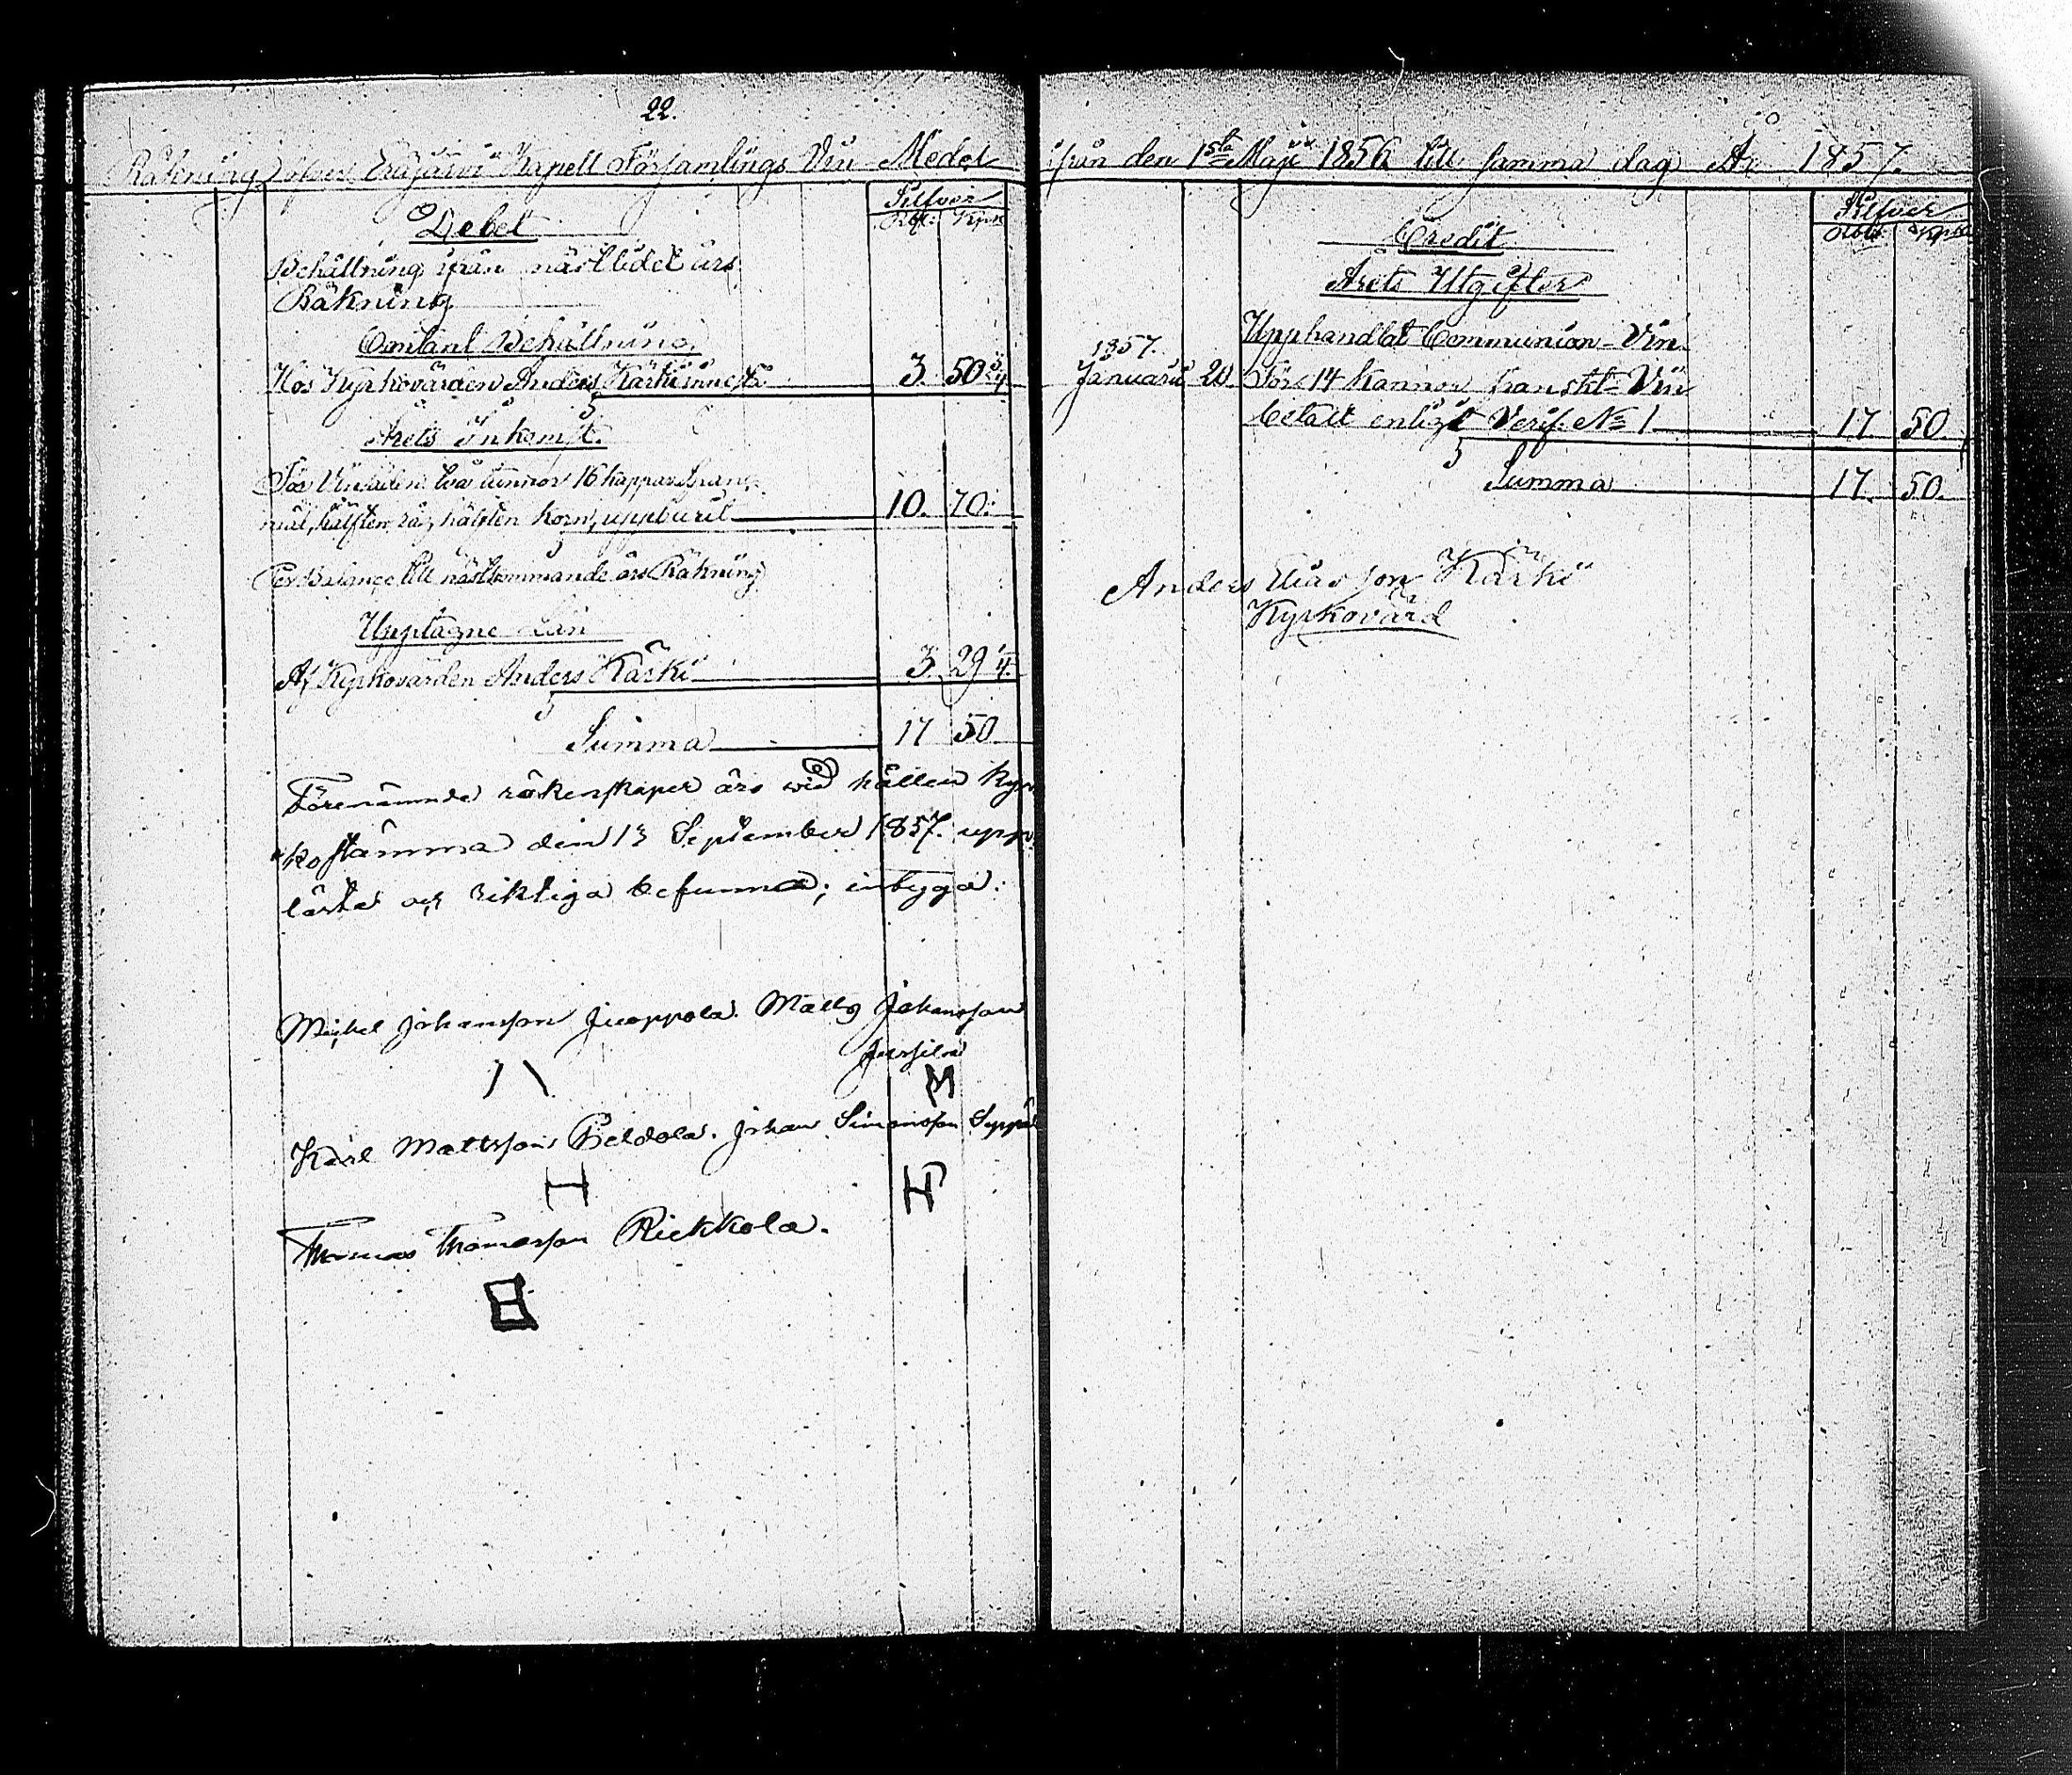 22.
Räkning öfver Eräjärvi Kapell Församlings Vin Medel
Silfver
Rbl: Kpk
Debet
Behållning ifrån nästlidet års
Räkning
Contant Behållning.
Hos Kyrkovärden Anders Kärki 3. 50 3/4
Årets Inkomst.
För Vinsäden två tunnor 16 kappar span-
mål, hälften råg hälften korn, uppburit 10. 70.
Per Balance till nästkommande års Räkning
Upptagne Lån
Af Kyrkovärden Anders Kärki 3. 29 1/4.
Summa 17 50
Förenämnde räkenskaper äro wid hållen Kyr-
kostämma den 13 September 1857. upp-
läste och riktiga befunna; intyga:
Michel Johansson Juoppola. Matts Johansson
Jussila
Karl Mattsson Peldola. Johan Simonsson Seppä
Thomas Thomasson Riekkola.
ifrån den 1sta Maji 1856 till samma dag År 1857.
Silfver
Rbl: Kpk
Credit
Årets Utgifter
Upphandlat Communion-Vin.
1857.
Januarii 20 För 14 Kannor franskt Vin
betalt enligt Verif. No 1 17. 50.
Summa 17. 50.
Anders Eliasson Kärki
Kyrkovärd